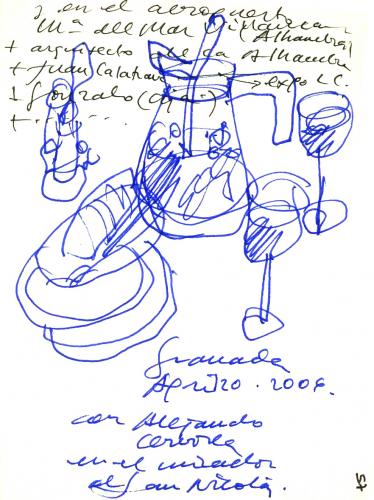 y en el aeropuerto
Mª del Mar Villafranca (Alhambra)
+ arquitecto de la Alhambra
+ Juan Calatrava → expo LC.
+ Gonzalo
+
Granada
April 20. 2006.
con Alejandro
en el mirador
de San Nicolás.
45